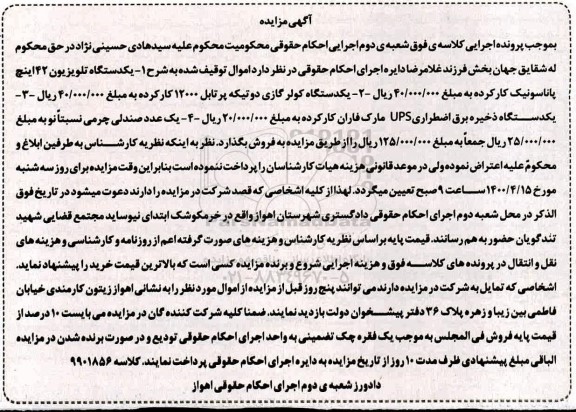 آگهی مزایده
بموجب پرونده اجرایی کلاسه ی فوق شعبه ی دوم اجرایی احکام حقوقی محکومیت محکوم علیه سیدهادی حسینی نژاد در حق محکوم
له شقایق جهان بخش فرزند غلامرضا دایره اجرای احکام حقوقی در نظر دارد اموال توقیف شده به شرح ۱- یکدستگاه تلویزیون ۴۲ اینچ
پاناسونیک کارکرده به مبلغ ۴۰/۰۰۰/۰۰۰ ریال -۲- یکدستگاه کولر گازی دو تیکه پرتابل ۱۲۰۰۰ کارکرده به مبلغ ۴۰/۰۰۰/۰۰۰ ریال -۳-
یکدستگاه ذخیره برق اضطراری UPS مارک فاران کارکرده به مبلغ ۲۰/۰۰۰/۰۰۰ ریال -۴- یک عدد صندلی چرمی نسبتاً نو به مبلغ
۲۵/۰۰۰/۰۰۰ ریال جمعاً به مبلغ ۱۲۵/۰۰۰/۰۰۰ ریال را از طریق مزایده به فروش بگذارد. نظر به اینکه نظریه کارشناس به طرفین ابلاغ و
محکوم علیه اعتراض نموده ولی در موعد قانونی هزینه هیات کارشناسان را پرداخت ننموده است بنابراین وقت مزایده برای روز سه شنبه
مورخ ۱۴۰۰/۴/۱۵ ساعت ۹ صبح تعیین میگردد. لهذا از کلیه اشخاصی که قصد شرکت در مزایده را دارند دعوت میشود در تاریخ فوق
الذکر در محل شعبه دوم اجرای احکام حقوقی دادگستری شهرستان اهواز واقع در خرمکوشک ابتدای نیوساید مجتمع قضایی شهید
تندگویان حضور به هم رسانند. قیمت پایه بر اساس نظریه کارشناس و هزینه های صورت گرفته اعم از روزنامه و کارشناسی و هزینه های
نقل و انتقال در پرونده های کلاسه فوق و هزینه اجرایی شروع و برنده مزایده کسی است که بالاترین قیمت خرید را پیشنهاد نماید.
اشخاصی که تمایل به شرکت در مزایده دارند می توانند پنج روز قبل از مزایده از اموال مورد نظر را به نشانی اهواز زیتون کارمندی خیابان
فاطمی بین زیبا و زهره پلاک ۳۶ دفتر پیشخوان دولت بازدید نمایند. ضمنا کلیه شرکت کننده گان در مزایده می بایست ۱۰ درصد از
قیمت پایه فروش فی المجلس به موجب یک فقره چک تضمینی به واحد اجرای احکام حقوقی تودیع و در صورت برنده شدن در مزایده
الباقی مبلغ پیشنهادی ظرف مدت ۱۰ روز از تاریخ مزایده به دایره اجرای احکام حقوقی پرداخت نمایند. کلاسه ۹۹۰۱۸۵۶
دادورز شعبه ی دوم اجرای احکام حقوقی اهواز